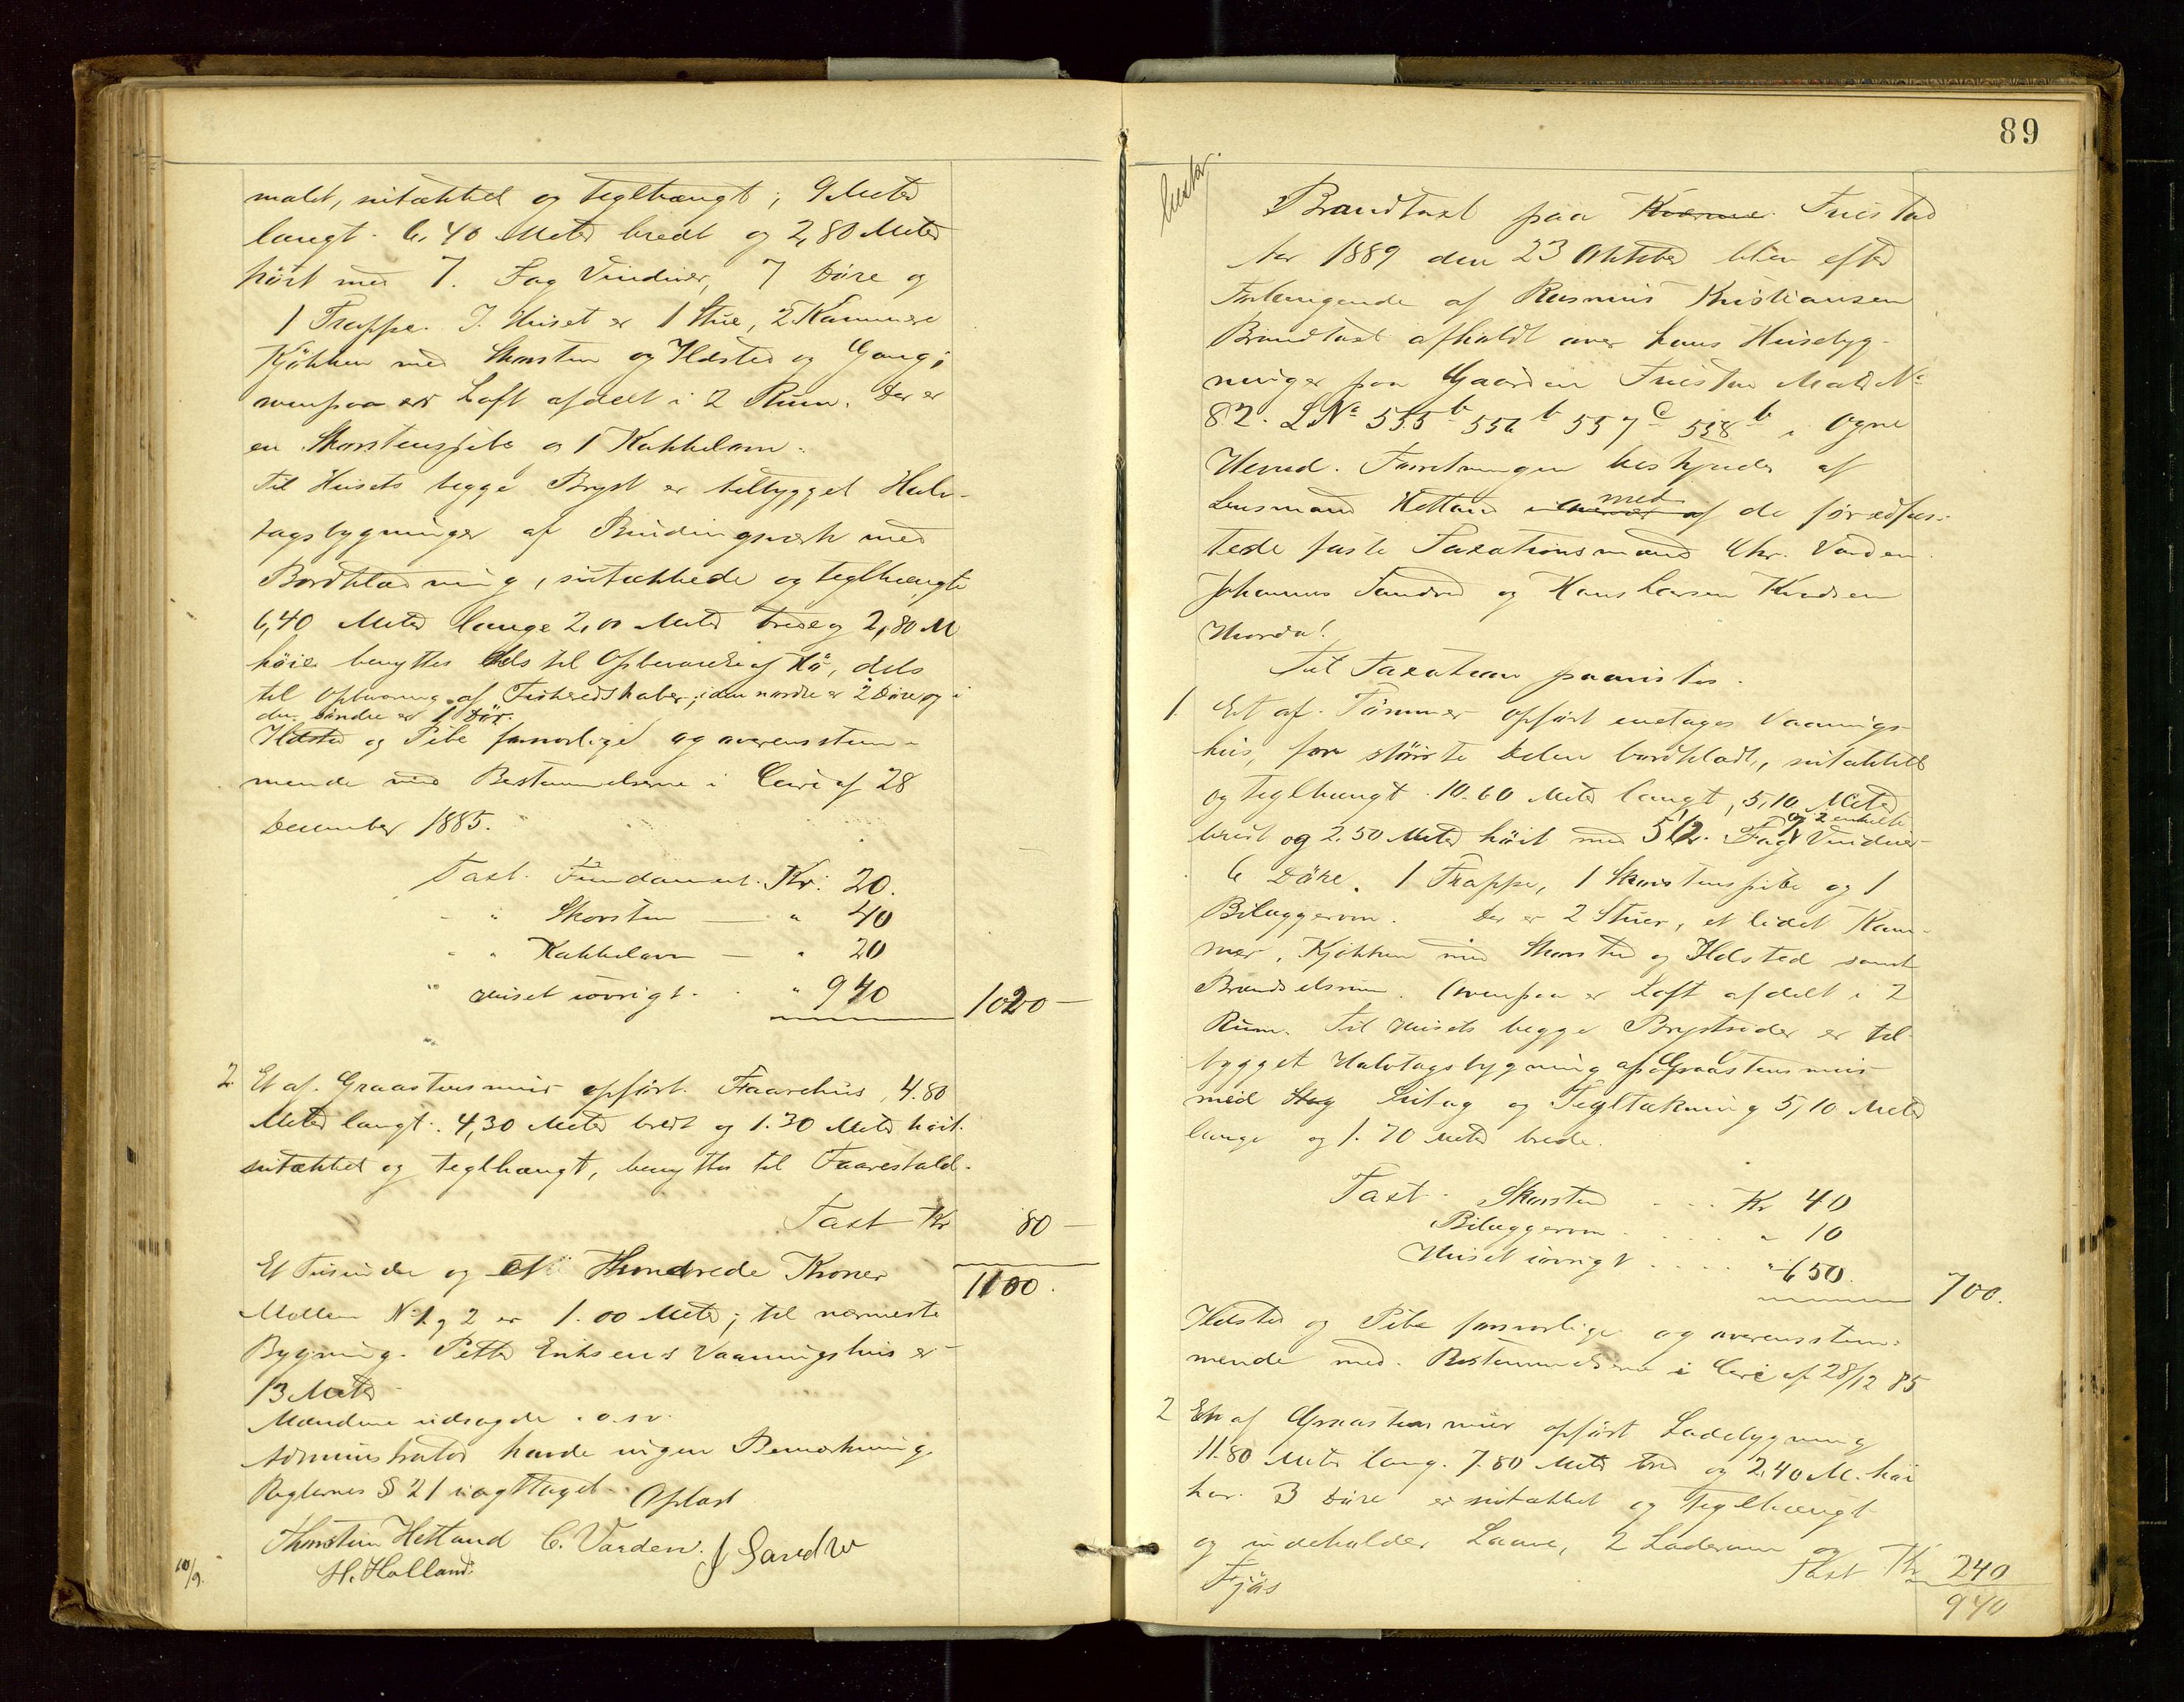 malet, sutækket og teglhængt; 9 Meter
langt. 6,40 Meter bredt og 2,80 Meter
höit med 7. Fag Vinduer, 7 Döre og
1 Trappe. I Huset er 1 Stue, 2 Kammere
Kjökken med Skorsten og Ildsted og Gang;
ovenpaa er Loft afdelt i 2 Rum. Der er
en Skorstenspibe og 1 Kakkelovn.
Til Husets begge Bryst er tilbygget Halv-
tagsbygninger af Bindingsværk med
Bordklædning, sutækkede og teglhængte
6,40 Meter lange 2,00 Meter brede og 2,80 M
höie benyttes dels til Opbevarelse af Hö, dels
til Opbevaring af Fiskeredskaber; i den nordre er 2 Döre og i
den söndre er 1 Dör.
Ildsted og Pibe forsvarlige og overensstem-
mende med Bestemmelserne i Circ af 28
December 1885.
Taxt. Fundament. Kr: 20.
" Skorsten — " 40
" Kakkelovn — " 20
" Huset iövrigt. " 940
1020 —
2. Et af Graastensmur opfört Faarehus, 4.80
Meter langt. 4,30 Meter bredt og 1.30 Meter höit.
sutækket og teglhængt, benyttes til Faarestald.
Taxt Kr 80 —
Et Tusinde og et Hundrede Kroner
1100.
Mellem No 1 og 2 er 1.00 Meter; til nærmeste
Bygning. Petter Eriksens Vaaningshus er
13 Meter
Mændene udsagde. o.s.v.
Administrator havde ingen Bemærkning.
Reglernes § 21 iagttaget. Oplæst
Thorstein Hetland C. Varden. J Sandve
H. Holland.
10/9.
89
Brandtaxt paa Kværme Fuestad
Aar 1889 den 23 Oktober blev efter
Forlangende af Rasmus Kristiansen
Brandtaxt afholdt over hans Husebyg-
ninger paa Gaarden Fuestad Matr No
82. LNo 555b 556b 557c 558b i Ogne
Herred. Forretningen bestyredes af
Lensmand Hetland med af de för edfæs-
tede faste Taxationsmænd Chr. Varden
Johannes Sandve og Hans Larsen Kvadsen
Til Taxation paavistes.
1. Et af Tömmer opfört enetages Vaanings-
hus, for störste Delen bordklædt, sutækket
og teglhængt. 10.60 Meter langt, 5,10 Meter
bredt og 2.50 Meter höit med 5 1/2 Fag og 2 enkelte Vinduer
6 Döre, 1 Trappe, 1 Skorstenspibe og 1
Bilæggerovn. Der er 2 Stuer, et lidet Kam-
mer, Kjökken med Skorsten og Ildsted samt
Brændselsrum. Ovenpaa er Loft afdelt i 2
Rum. Til Husets begge Brystsider er til-
bygget Halvtagsbygning af Graastensmur
med Sutag og Tegltækning 5,10 Meter
lange og 1.70 Meter brede.
Taxt. Skorsten . . . Kr 40
Bilæggerovn . . . . " 10
Huset iövrigt . . . . " 650.
700.
Ildsted og Pibe forsvarlige og overensstem-
mende med Bestemmelserne i Circ af 28/12 85
2 En af Graastensmur opfört Ladebygning
11.80 Meter lang. 7.80 Meter bred og 2,40 M. höi
har 3 Döre er sutækket og teglhængt
og indeholder Laave, 2 Laderum og
Fjös Taxt Kr 240
940